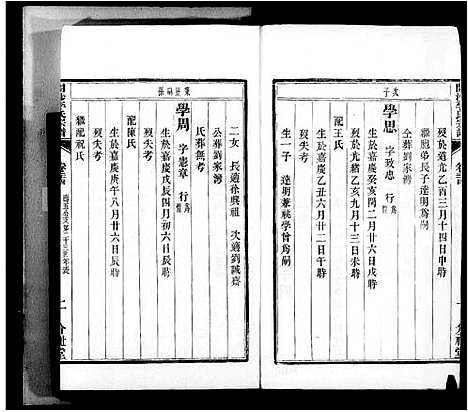 歿於道光乙酉三月十四日申時
繼胞弟長子達明爲嗣
仝葬劉家灣
次子
學思 字致忠 行
生於嘉慶癸亥閏二月廿六日戌時
歿於光緒乙亥九月十三日未時
配王氏
生於嘉慶乙丑六月廿六日午時
歿失考
生一子 達明兼祧學曾爲嗣
二女 長適徐興祖 次適劉誠齋
公葬劉家灣
氏葬無考
學周 字憲章 行
生於嘉慶戊辰四月初六日辰時
歿失考
配陳氏
生於嘉慶庚午八月廿六日辰時
歿失考
繼配祝氏